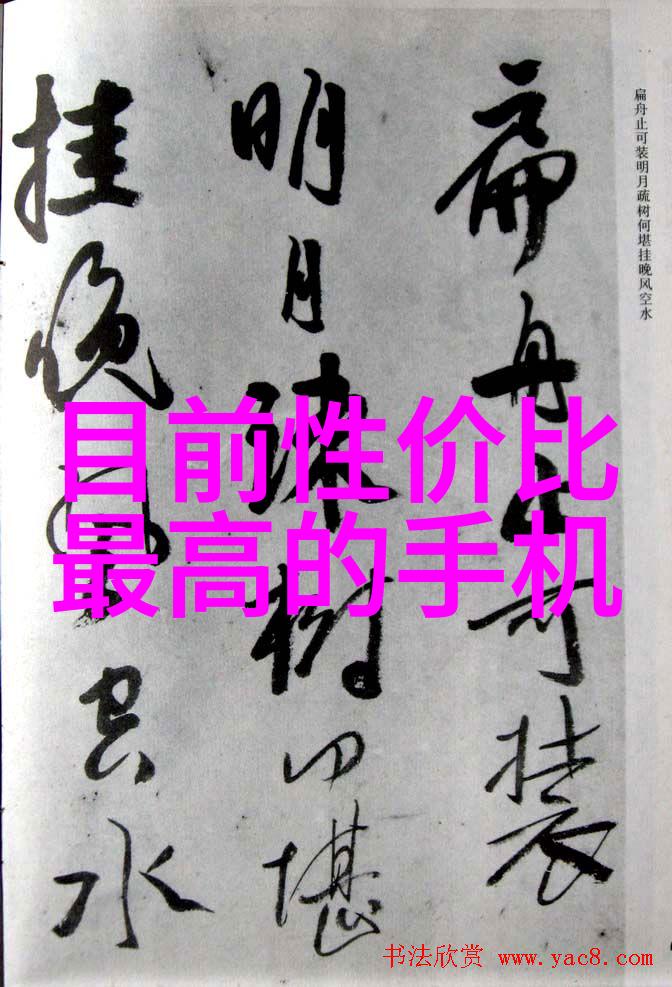 扁舟止可装
明月疏树何堪
挂晚风空水
扁舟止可装明月疏树何堪挂晚风空水
目前性价比
最高的手机
书法欣赏 www.yac8.com